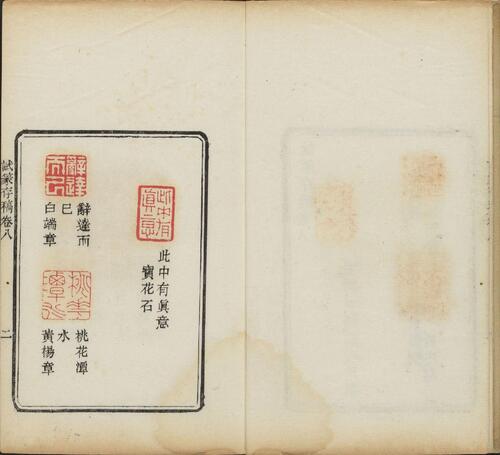 此中有
眞意
此中有眞意
寶花石
辭達
而已
辭達而
已
白端章
桃花
潭水
桃花潭
水
黃楊章
試篆存稿卷八
二